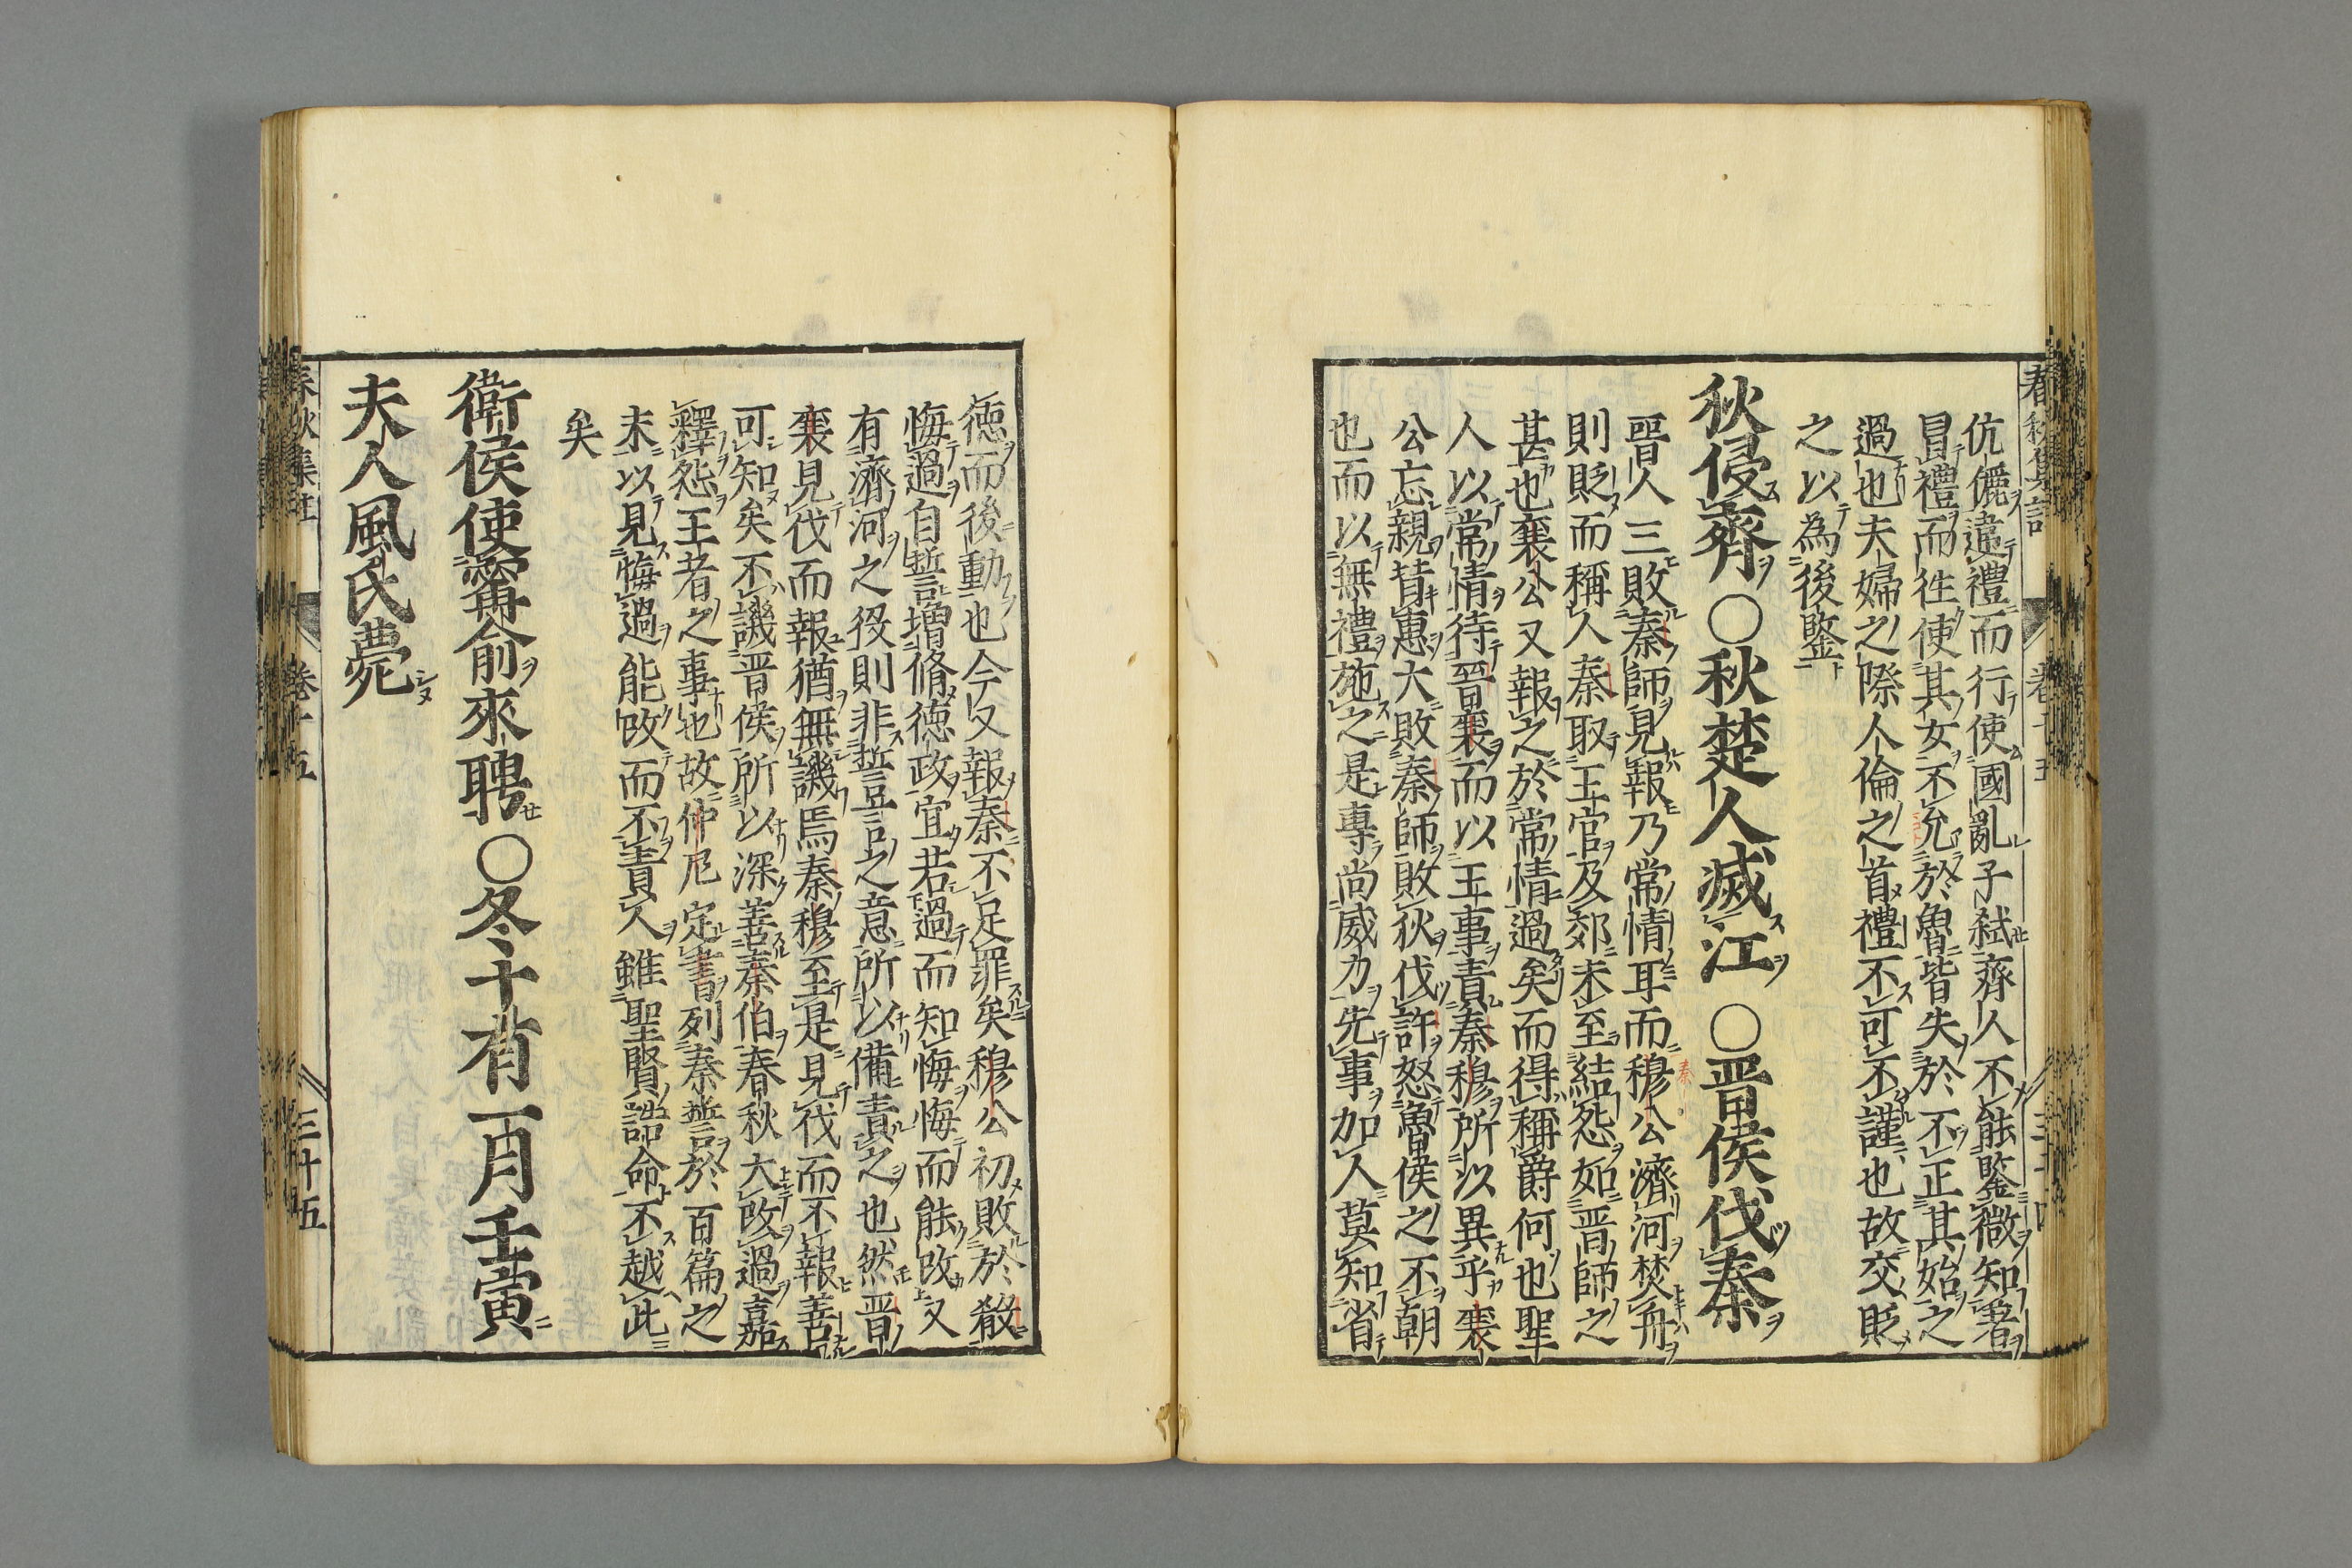 伉儷違禮而行使國亂子弑齊人不能鑒微知著
冒禮而徃使其女不允於魯皆失於不正其始之
過也夫婦之際人倫之首禮不可不謹也故交貶
之以為後鑒
狄侵齊○秋楚人滅江○晉侯伐秦
晉人三敗秦師見報乃常情耳而穆公濟河焚舟
則貶而稱人秦取王官及郊未至結怨如晉師之
甚也襄公又報之於常情過矣而得稱爵何也聖
人以常情待晉襄而以王事責秦穆所以異乎襄
公忘親背惠大敗秦師敗狄伐許怒魯侯之不朝
也而以無禮施之是專尚威力先事加人莫知省
德而後動也今又報秦不足罪矣穆公初敗於殽
悔過自誓增脩德政宜若過而知悔悔而能改又
有濟河之役則非誓言之意所以備責之也然晉
襄見伐而報猶無譏焉秦穆至是見伐而不報善
可知矣不譏晉侯所以深善秦伯春秋大改過嘉
釋怨王者之事也故仲尼定書列秦誓於百篇之
末以見悔過能改而不責人雖聖賢誥命不越此
矣
衛侯使甯俞來聘○冬十有一月壬寅
夫人風氏薨
春秋集註
卷十五
三十五